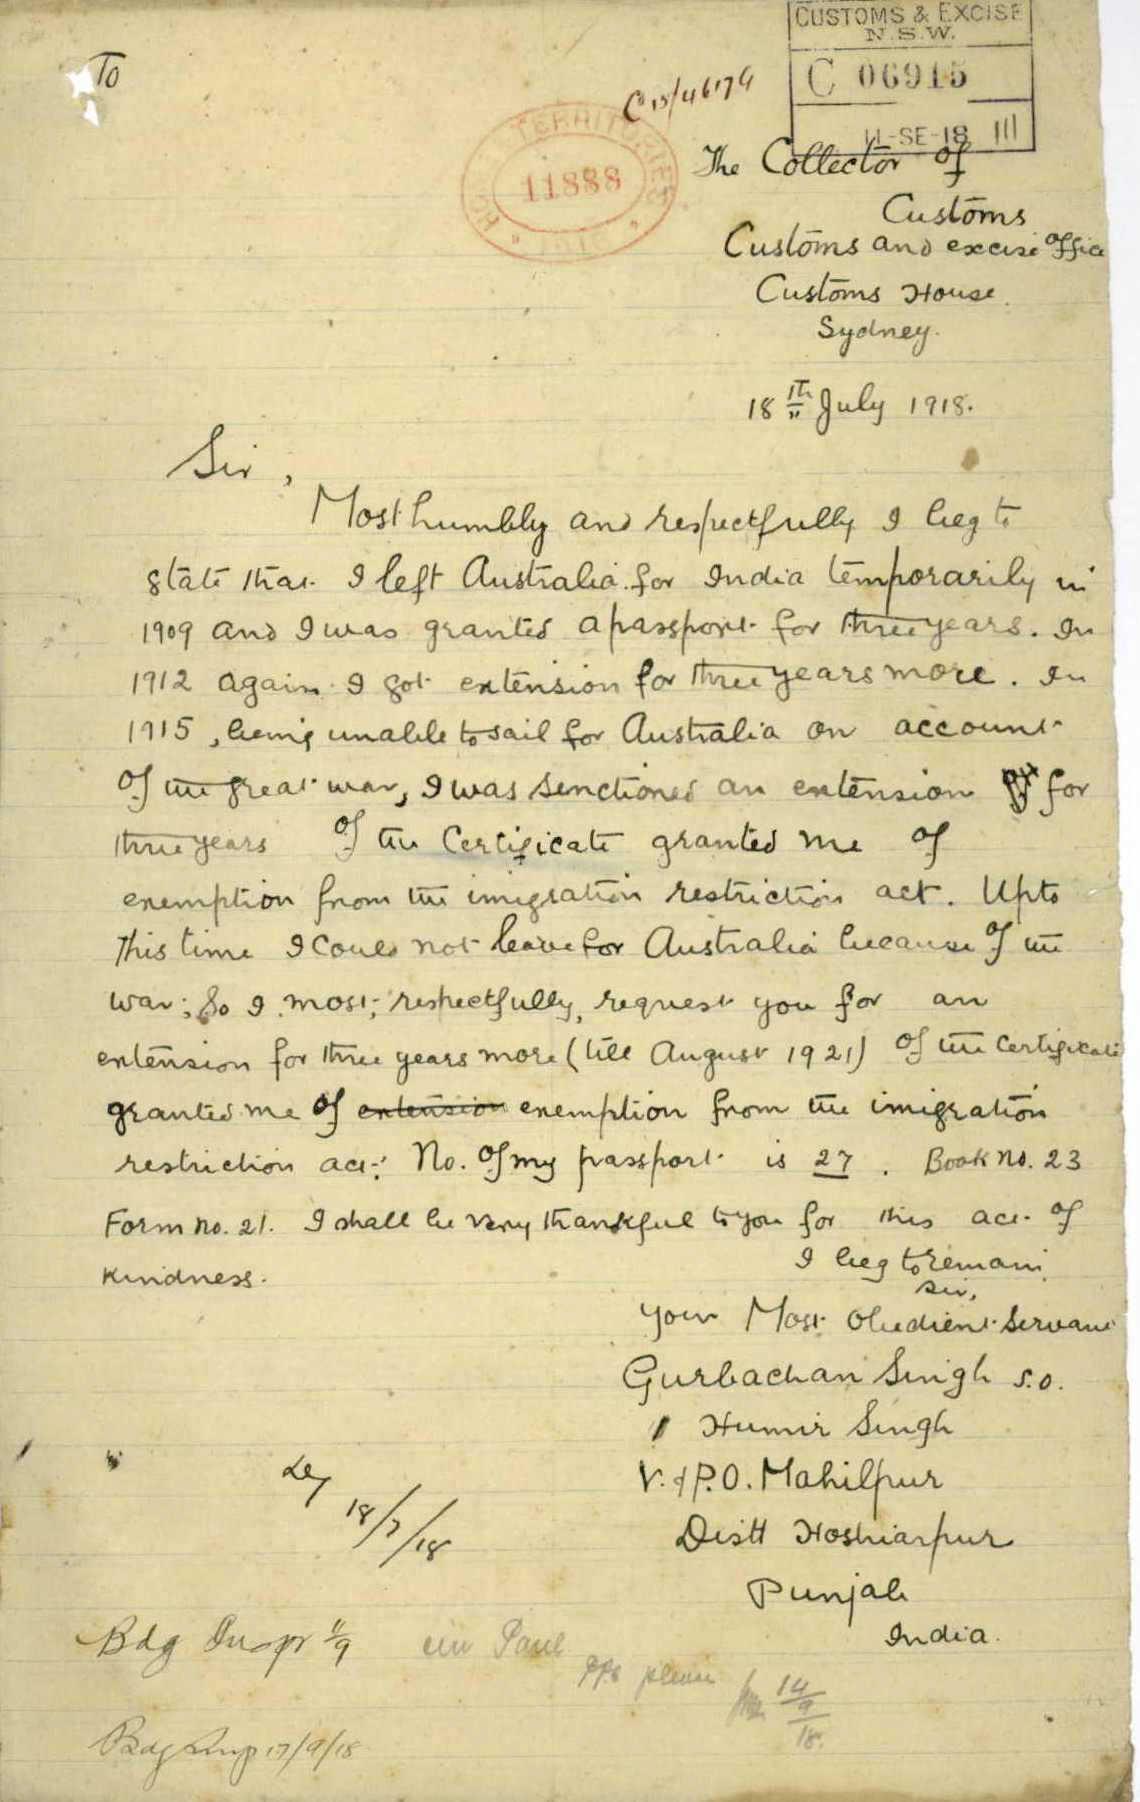 CUSTOMS & EXCISE
N.S.W.
C 06915
11-SE-18 III
To
C 15/46179
TERRITORIES
11888
The Collector of
Customs
Customs and excise office
Customs House
Sydney.
18th July 1918.
Sir,
Most humbly and respectfully I beg to
state that I left Australia for India temporarily in
1909 and I was granted a passport for three years. In
1912 again I got extension for three years more. In
1915, being unable to sail for Australia on account
of the great war, I was senctioned an extension for
three years of the Certificate granted me of
exemption from the imigration restriction act. Upto
this time I could not leave for Australia because of the
war; So I most respectfully, request you for an
extension for three years more (till August 1921) of the Certificate
granted me of extension exemption from the imigration
restriction act. No. of my passport is 27. Book No. 23
Form no. 21. I shall be very thankful to you for this act of
kindness.
I beg to remain
Sir,
your Most obedient Servant
Gurbachan Singh s.o.
Humir Singh
V. & P.O. Mahilpur
Distt Hoshiarpur
Punjab
India.
18/7/18
Bdg Inspr 11/9
please
14/9/18
Bdg Insp 17/9/18